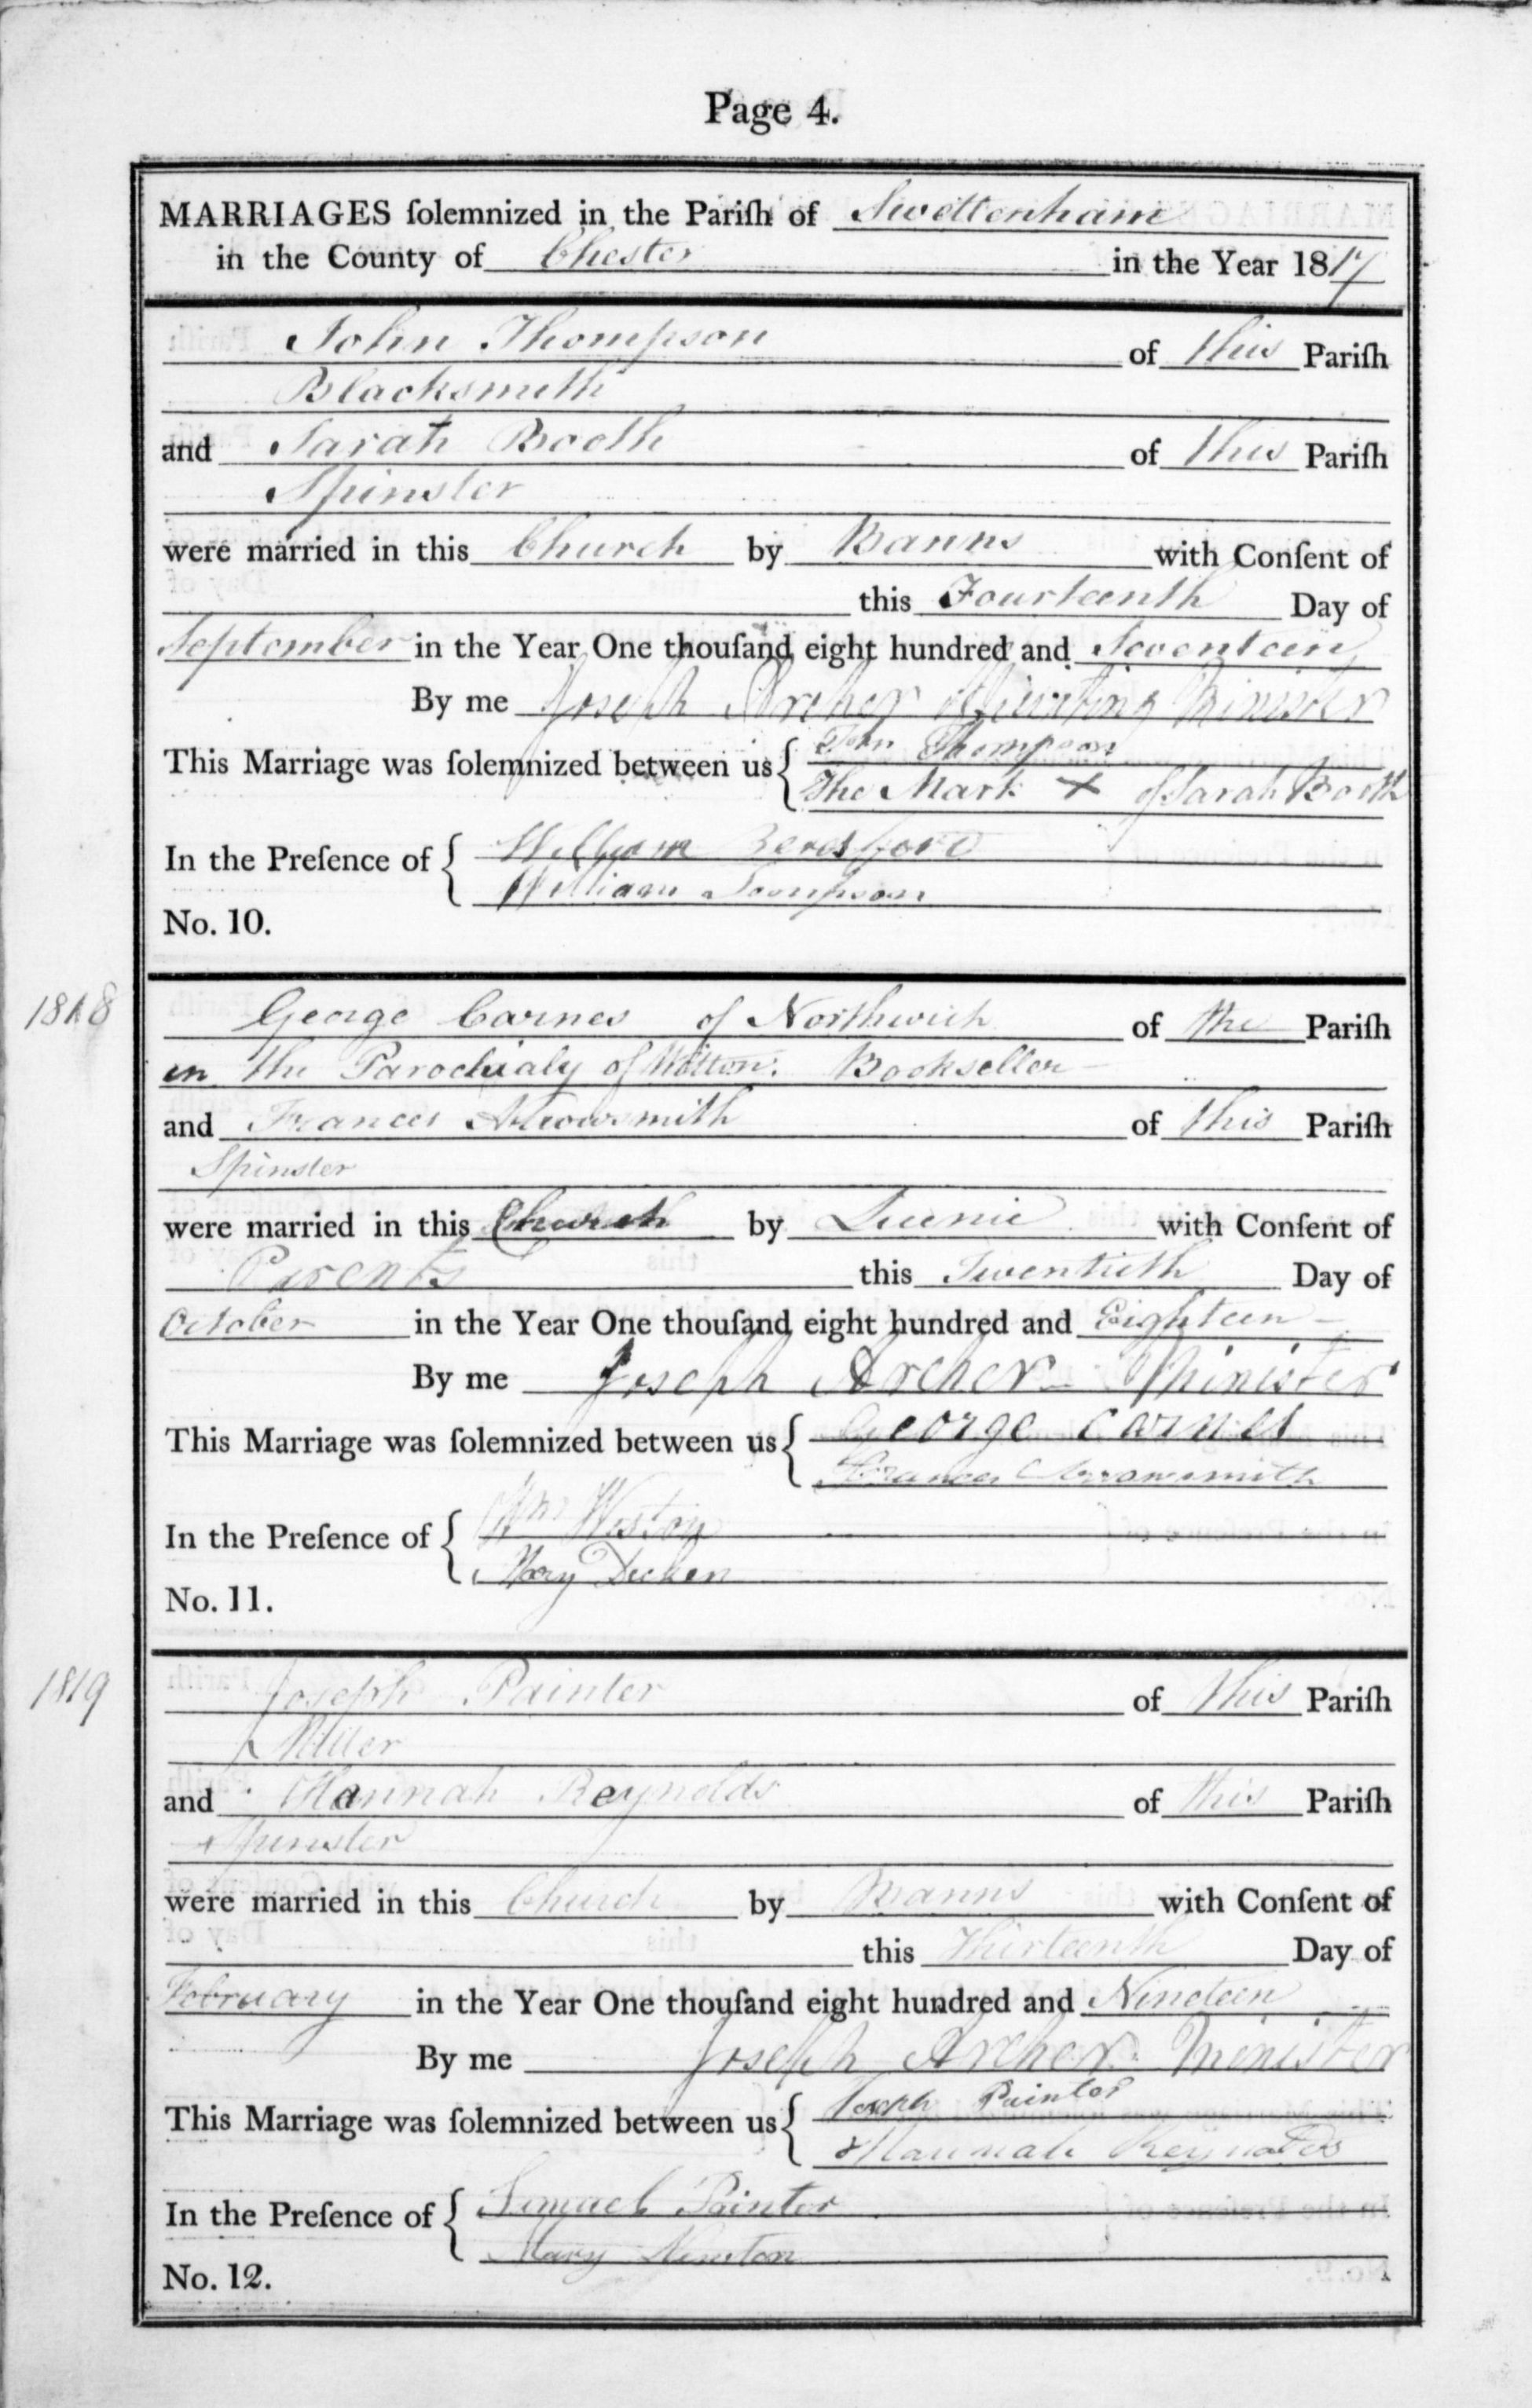 Page 4.
MARRIAGES ſolemnized in the Pariſh of Swettenham
in the County of Chester in the Year 1817
John Thompson of this Pariſh
Blacksmith
and Sarah Booth of this Pariſh
Spinster
were married in this Church by Banns with Conſent of
this Fourteenth Day of
September in the Year One thouſand eight hundred and Seventeen
By me Joseph Archer Officiating Minister
This Marriage was ſolemnized between us { John Thompson
The Mark X of Sarah Booth
In the Preſence of { William Beresford
William
No. 10.
1818
George Carnes of Northwich of the Pariſh
in the of Witton. Bookseller
and Frances Arrowsmith of this Pariſh
Spinster
were married in this Church by with Conſent of
Parents this Twentieth Day of
October in the Year One thouſand eight hundred and Eighteen
By me Joseph Archer Minister
This Marriage was ſolemnized between us { George Carnes
Frances Arrowsmith
In the Preſence of { Wm
Mary
No. 11.
1819
Joseph Painter of this Pariſh
Miller
and Hannah Reynolds of this Pariſh
Spinster
were married in this Church by Banns with Conſent of
this Thirteenth Day of
February in the Year One thouſand eight hundred and Nineteen
By me Joseph Archer Minister
This Marriage was ſolemnized between us { Joseph Painter
Hannah Reynolds
In the Preſence of { Samuel Painter
Mary Newton
No. 12.